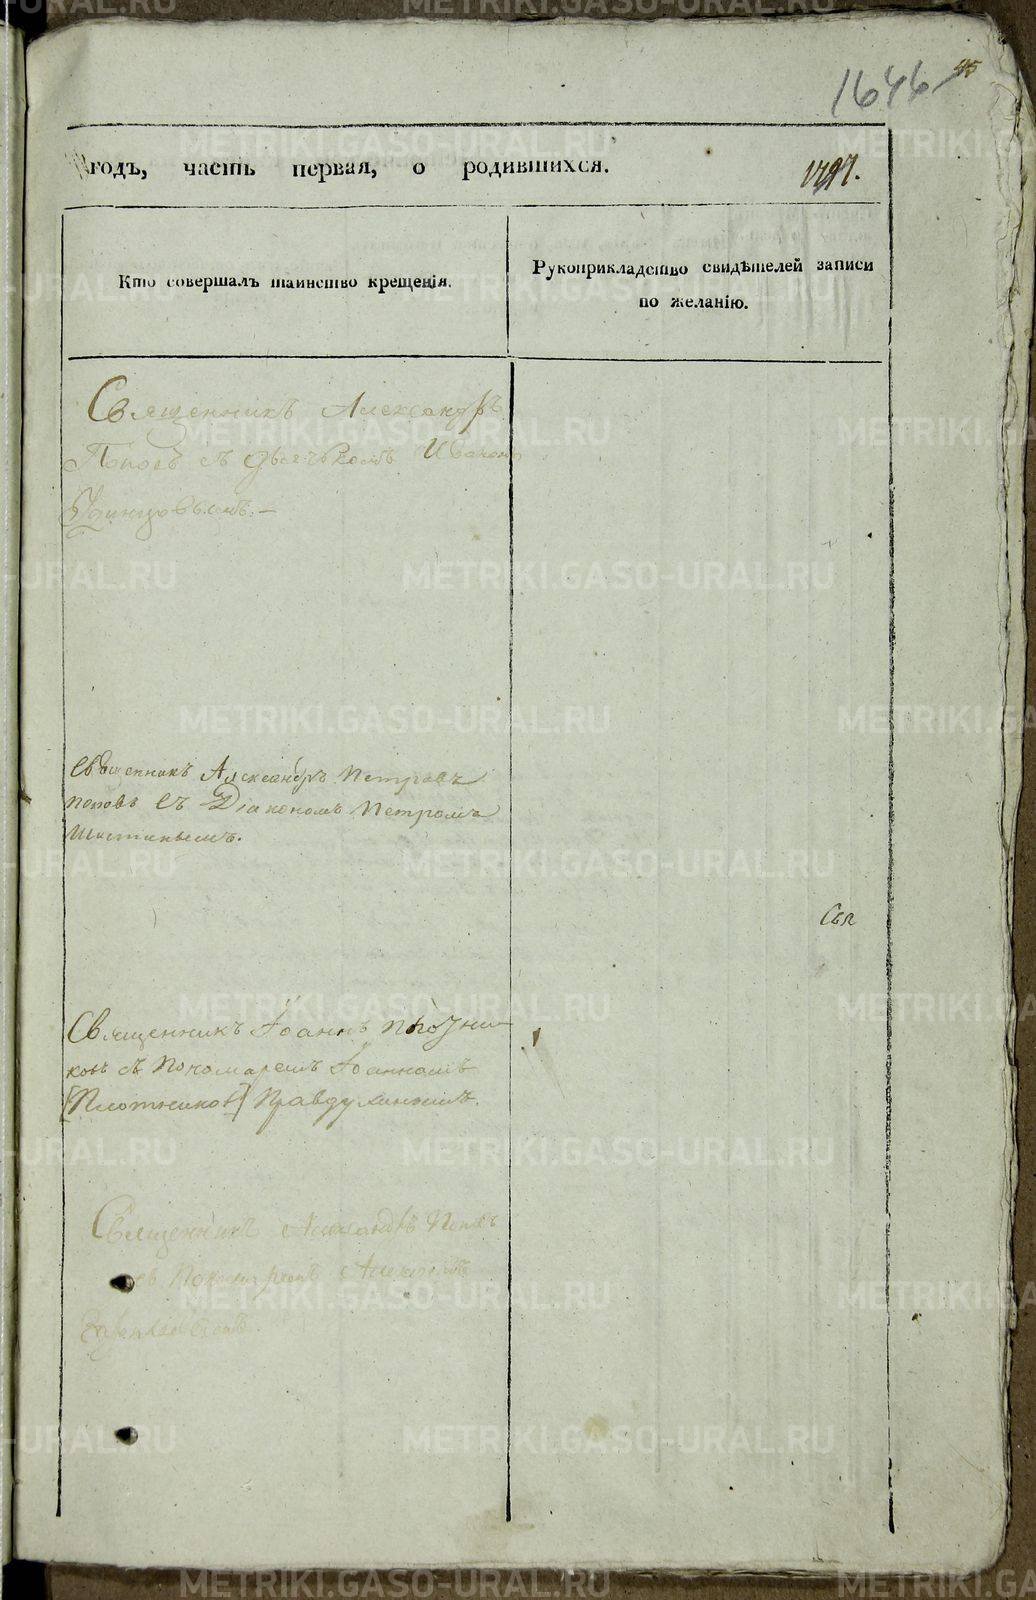 1646
45
годъ, часть первая, о родившихся.
Кто совершалъ таинство крещенія.
Рукоприкладство свидѣтелей записи
по желанію.
Священникъ Александръ
Поповъ съ дьячькомъ Иваномъ
Священникъ Александръ Петровъ
поповъ Съ Діакономъ Петромъ
Свя
Священникъ Іоаннъ
ковъ съ Пономаремъ Іоанномъ
[Плотников] Правдухинымъ.
Священникъ Александръ Поповъ
съ Пономаремъ Алексеемъ
METRIKI.GASO-URAL.RU